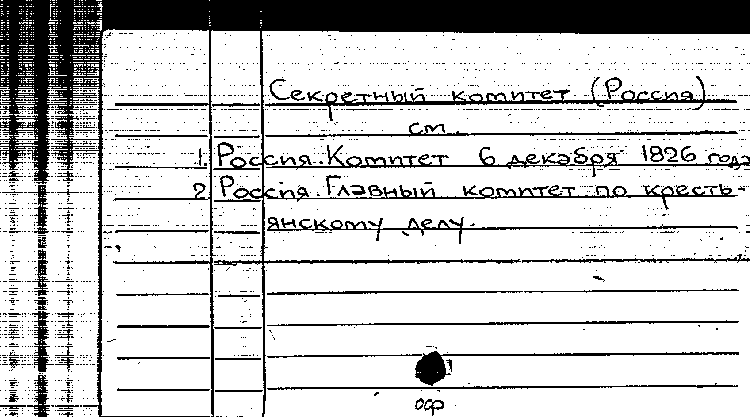 Секретный комитет (Россия)
см.
1. Россия. Комитет 6 декабря 1826 года
2. Россия. Главный комитет по кресть-
янскому делу.
оср